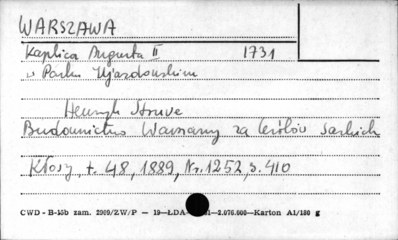 WARSZAWA
Kaplica Augusta II 1731
w Parku Ujazdowskim
Henryk Struve
Budownictwo Warszawy za królów saskich
Kłosy, t. 48, 1889, Nr. 1252, s. 410
CWD - B-15b zam. 2909/ZW/P — 19—ŁDA- —2.070.000—Karton A1/180 g